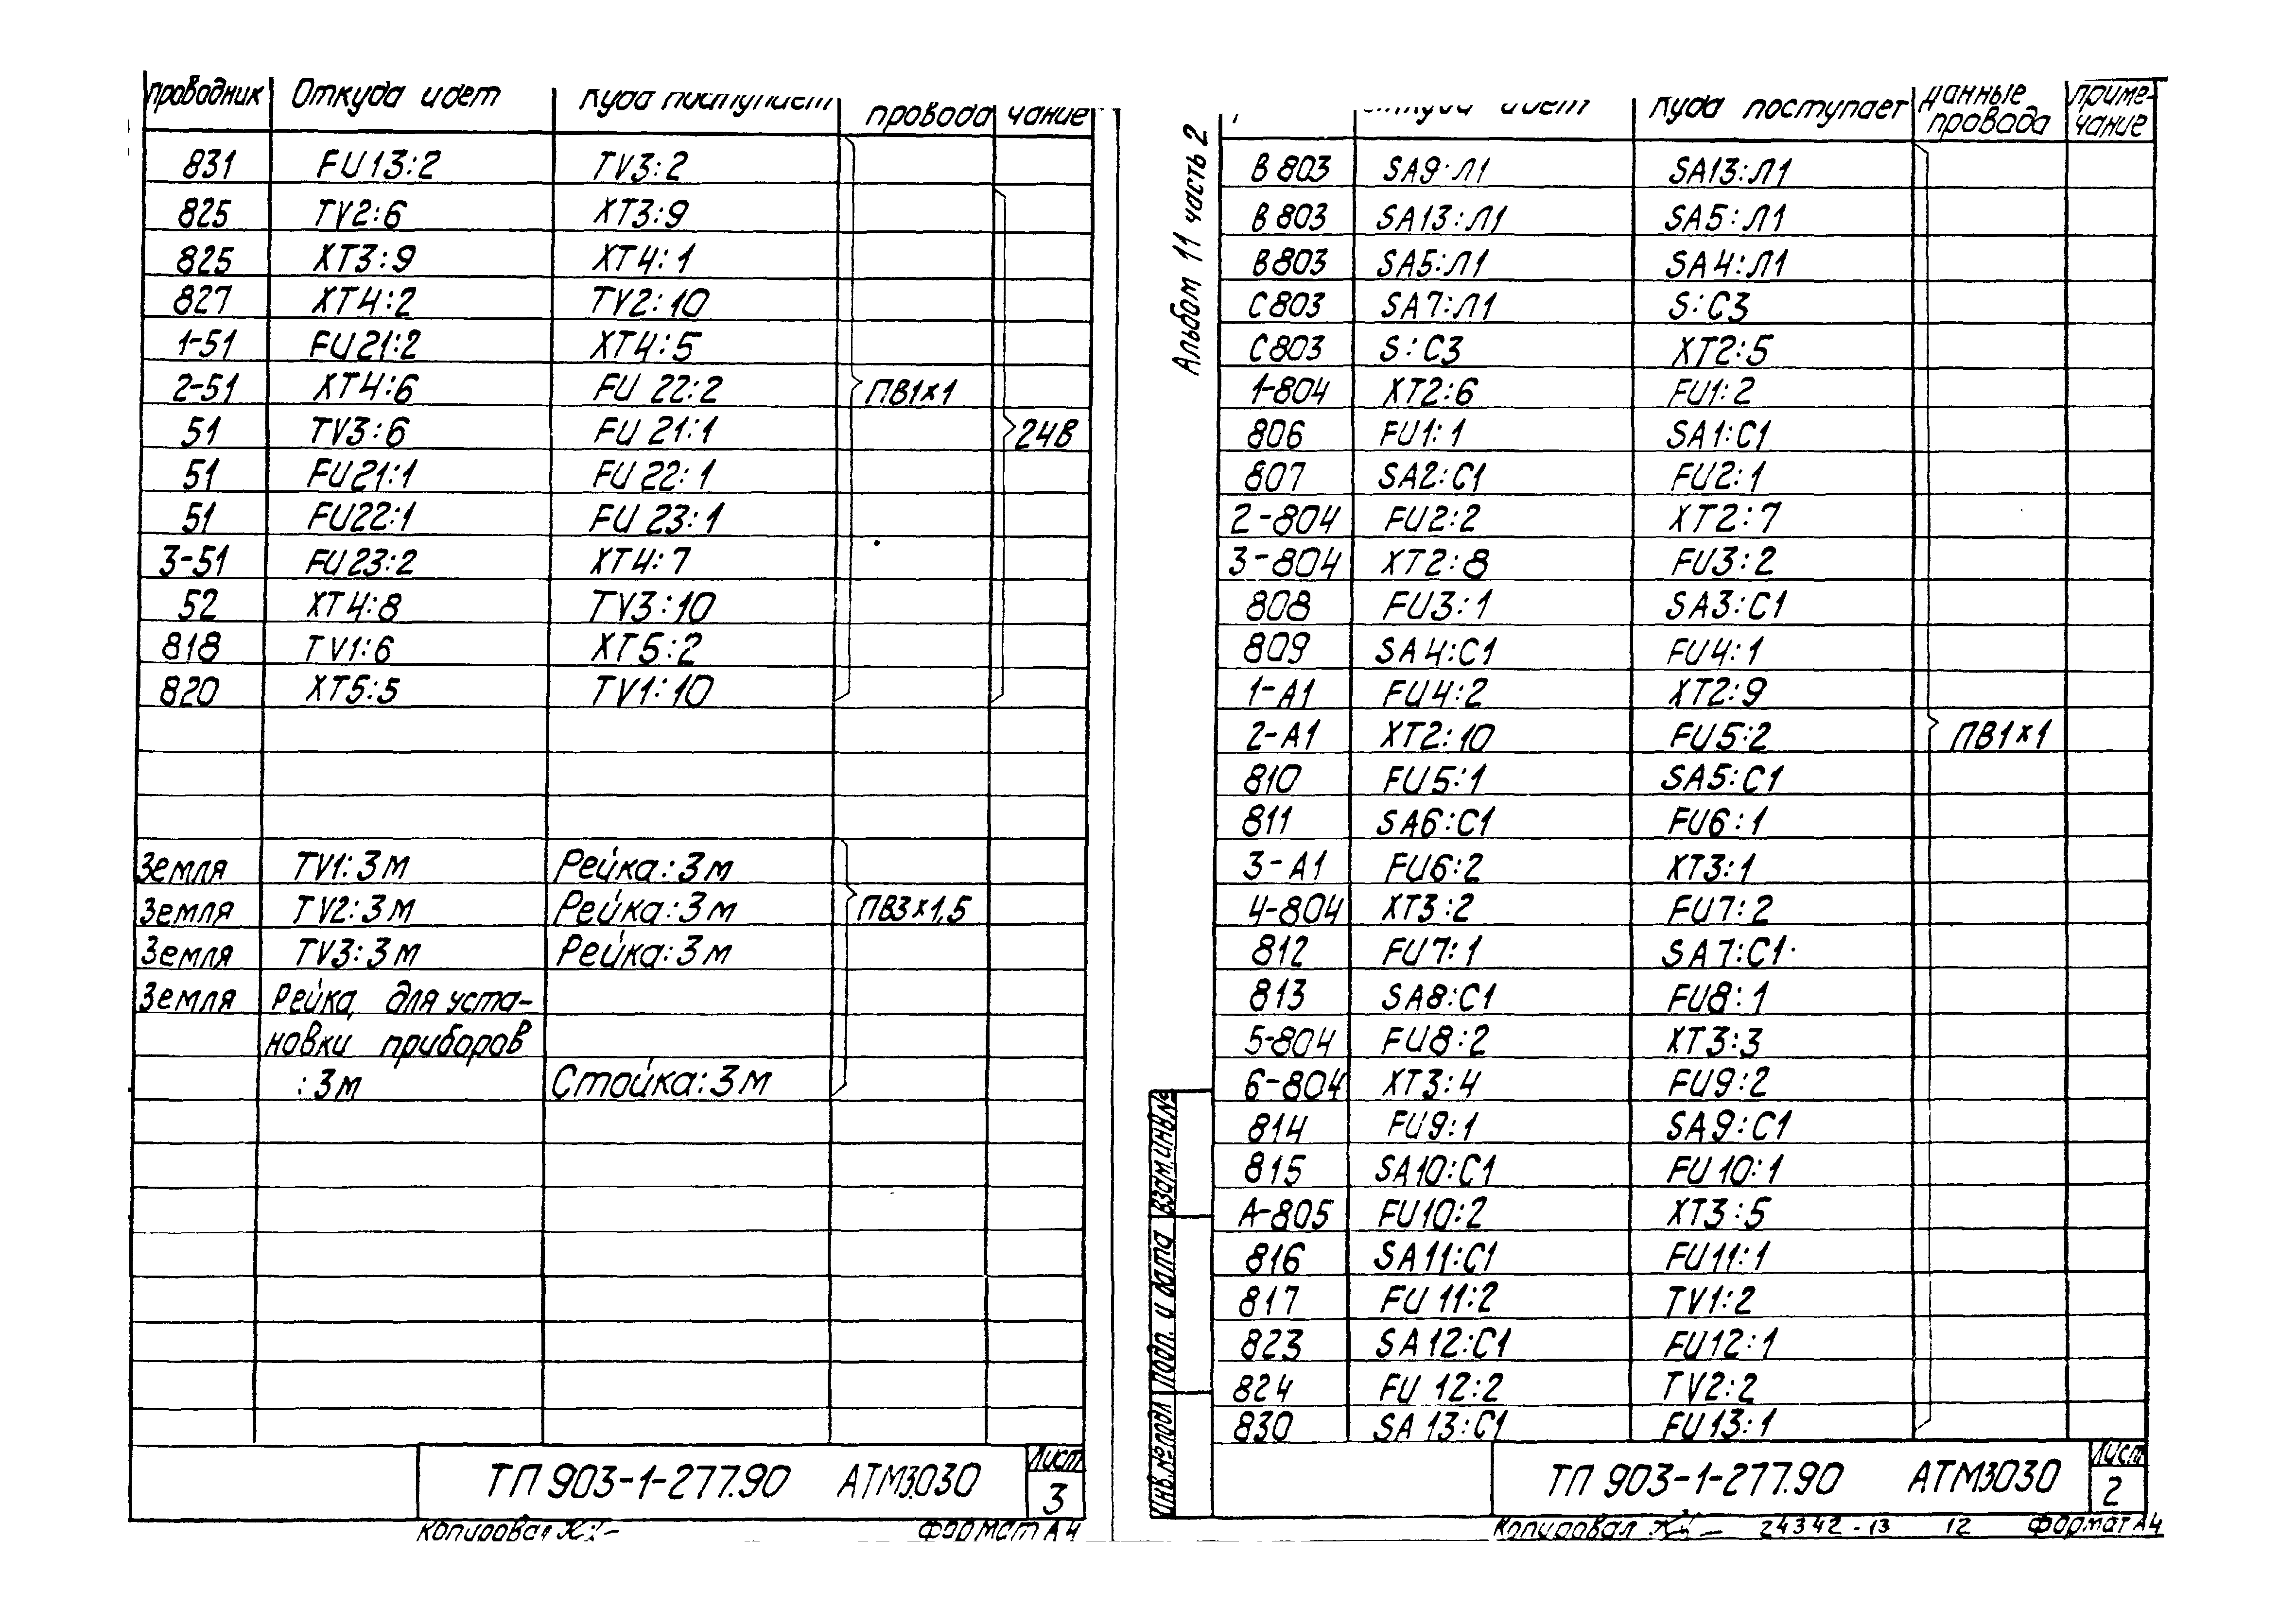 проводник Откуда идет Куда поступает провода чание
831 FU13:2 TV3:2
825 TV2:6 XT3:9
825 XT3:9 XT4:1
827 XT4:2 TV2:10
1-51 FU21:2 XT4:5
2-51 XT4:6 FU 22:2 ПВ1×1
51 TV3:6 FU 21:1 24В
51 FU21:1 FU 22:1
51 FU22:1 FU 23:1
3-51 FU23:2 XT4:7
52 XT4:8 TV3:10
818 TV1:6 XT5:2
820 XT5:5 TV1:10
Земля TV1:Зм Рейка:Зм
Земля TV2:Зм Рейка:Зм ПВ3×1,5
Земля TV3:Зм Рейка:Зм
Земля Рейка, для уста-
новки приборов
:Зм Стойка:Зм
ТП 903-1-277.90 АТМ3.030 Лист
3
Копировал формат А4
Альбом 11 часть 2
Откуда идет Куда поступает данные приме-
провода чание
В803 SA9:Л1 SA13:Л1
В803 SA13:Л1 SA5:Л1
В803 SA5:Л1 SA4:Л1
С803 SA7:Л1 S:С3
С803 S:С3 XT2:5
1-804 XT2:6 FU1:2
806 FU1:1 SA1:С1
807 SA2:С1 FU2:1
2-804 FU2:2 XT2:7
3-804 XT2:8 FU3:2
808 FU3:1 SA3:С1
809 SA4:С1 FU4:1
1-А1 FU4:2 XT2:9
2-А1 XT2:10 FU5:2 ПВ1×1
810 FU5:1 SA5:С1
811 SA6:С1 FU6:1
3-А1 FU6:2 XT3:1
4-804 XT3:2 FU7:2
812 FU7:1 SA7:С1
813 SA8:С1 FU8:1
5-804 FU8:2 XT3:3
6-804 XT3:4 FU9:2
814 FU9:1 SA9:С1
815 SA10:С1 FU10:1
А-805 FU10:2 XT3:5
816 SA11:С1 FU11:1
817 FU 11:2 TV1:2
823 SA12:С1 FU12:1
824 FU 12:2 TV2:2
830 SA 13:С1 FU13:1
Инв.№подл Подп. и дата Взам.инв.№
ТП 903-1-277.90 АТМ3030 Лист
2
Копировал 24342-13 12 формат А4